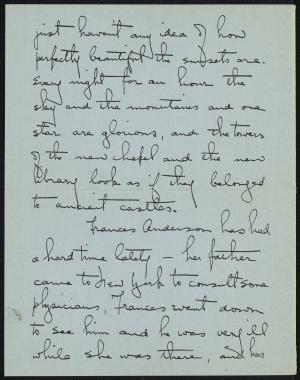 just haven't any idea of how
perfectly beautiful the sunsets are.
Every night for an hour the
sky and the mountains and one
star are glorious, and the towers
of the new chapel and the new
library look as if they belonged
to ancient castles.
Frances Anderson has had
a hard time lately — her father
came to New York to consult some
physicians, Frances went down
to see him and he was very ill
while she was there, and has